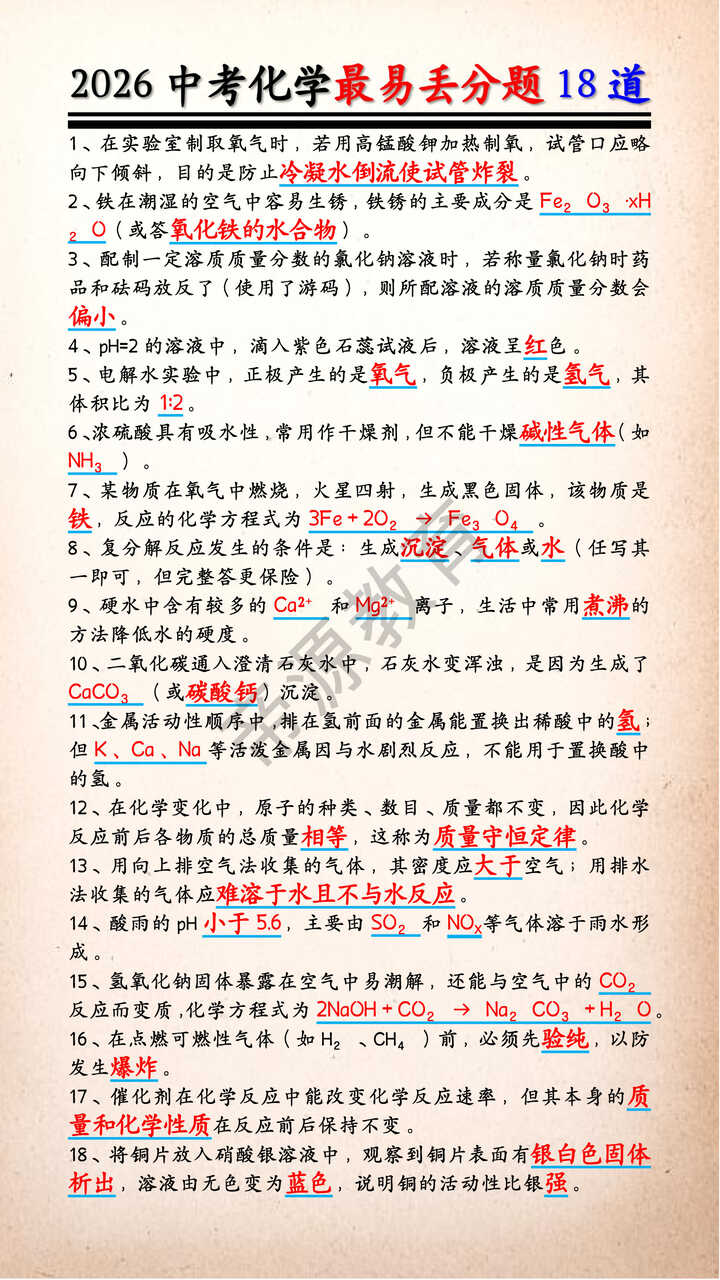 2026中考化学最易丢分题18道
1、在实验室制取氧气时，若用高锰酸钾加热制氧，试管口应略
向下倾斜，目的是防止冷凝水倒流使试管炸裂。
2、铁在潮湿的空气中容易生锈，铁锈的主要成分是 Fe₂ O₃ ·xH
₂ O（或答氧化铁的水合物）。
3、配制一定溶质质量分数的氯化钠溶液时，若称量氯化钠时药
品和砝码放反了（使用了游码），则所配溶液的溶质质量分数会
偏小。
4、pH=2 的溶液中，滴入紫色石蕊试液后，溶液呈红色。
5、电解水实验中，正极产生的是氧气，负极产生的是氢气，其
体积比为 1:2。
6、浓硫酸具有吸水性，常用作干燥剂，但不能干燥碱性气体（如
NH₃ ）。
7、某物质在氧气中燃烧，火星四射，生成黑色固体，该物质是
铁，反应的化学方程式为 3Fe + 2O₂ → Fe₃ O₄ 。
8、复分解反应发生的条件是：生成沉淀、气体或水（任写其
一即可，但完整答更保险）。
9、硬水中含有较多的 Ca²⁺ 和 Mg²⁺ 离子，生活中常用煮沸的
方法降低水的硬度。
10、二氧化碳通入澄清石灰水中，石灰水变浑浊，是因为生成了
CaCO₃ （或碳酸钙）沉淀。
11、金属活动性顺序中，排在氢前面的金属能置换出稀酸中的氢；
但 K、Ca、Na 等活泼金属因与水剧烈反应，不能用于置换酸中
的氢。
12、在化学变化中，原子的种类、数目、质量都不变，因此化学
反应前后各物质的总质量相等，这称为质量守恒定律。
13、用向上排空气法收集的气体，其密度应大于空气；用排水
法收集的气体应难溶于水且不与水反应。
14、酸雨的 pH 小于 5.6，主要由 SO₂ 和 NOₓ等气体溶于雨水形
成。
15、氢氧化钠固体暴露在空气中易潮解，还能与空气中的 CO₂
反应而变质，化学方程式为 2NaOH + CO₂ → Na₂ CO₃ + H₂ O。
16、在点燃可燃性气体（如 H₂ 、CH₄ ）前，必须先验纯，以防
发生爆炸。
17、催化剂在化学反应中能改变化学反应速率，但其本身的质
量和化学性质在反应前后保持不变。
18、将铜片放入硝酸银溶液中，观察到铜片表面有银白色固体
析出，溶液由无色变为蓝色，说明铜的活动性比银强。
帝源教育